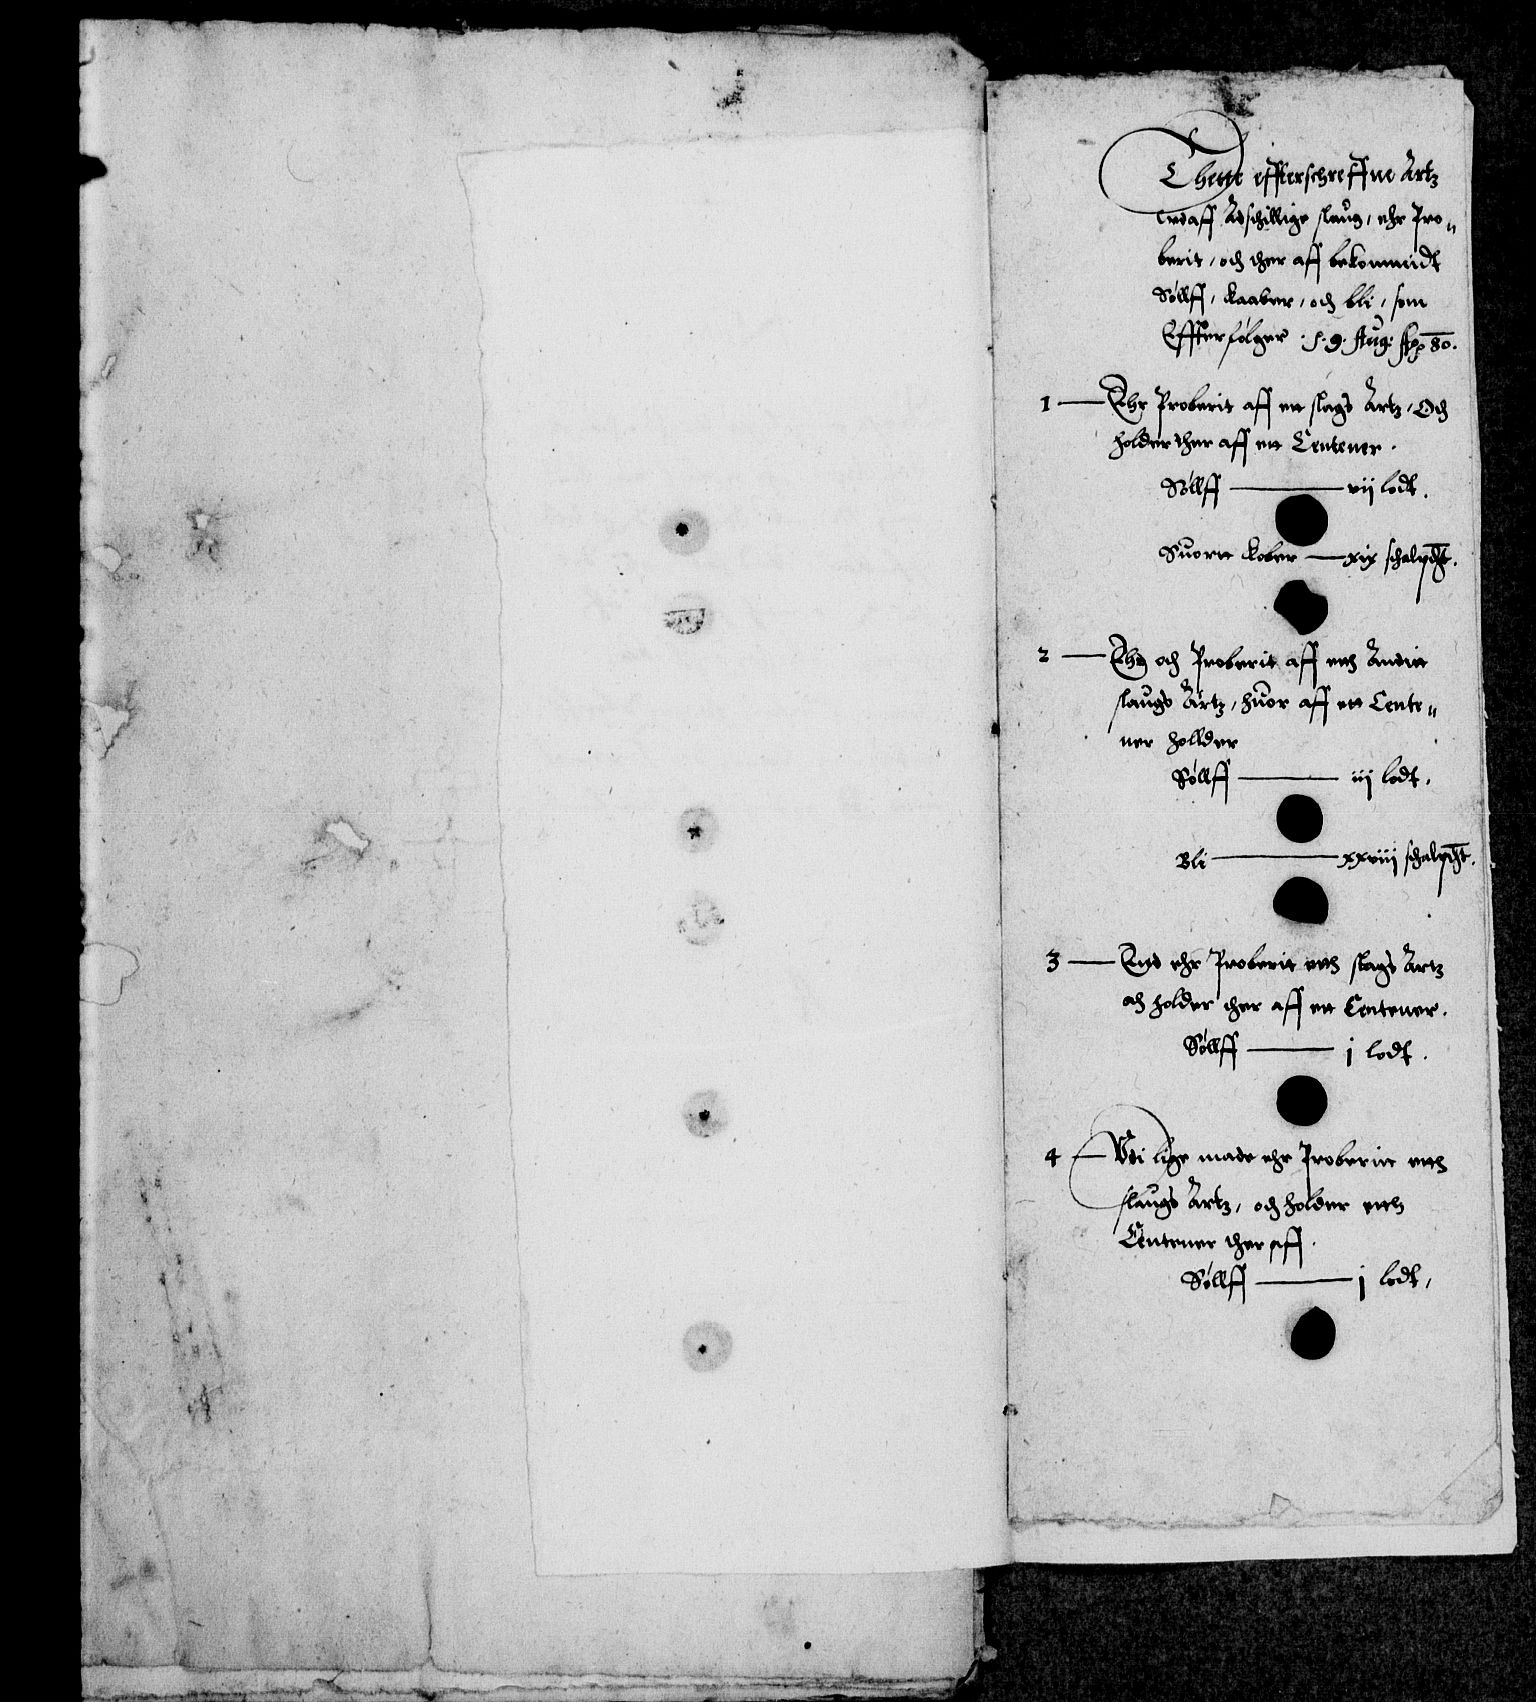 Thette effterschreffne Artz
Endaff Adschillige slaug, ehr Pro„
berit, och ther aff bekommidt
Sölff, kaaber, och bli, som
Effterfölger
1 — Ehr Proberit aff ett slags Artz, Och
holder ther aff ett Centener.
Sölff — vij lodt.
Suortt kober — xix schalpdt.
2 — Ehr och Proberit aff eth Andett
slaugs Artz, huor aff ett Cente„
ner hollder
Sölff — iij lodt.
Bli — xxviij schalpdt.
3 — End ehr Proberit eth slags Artz
och holder ther aff ett Centener.
Sölff — j lodt.
4 — Vdi lige made ehr Proberitt eth
slaugs Artz, och holder eth
Centener ther aff.
Sölff — j lodt,